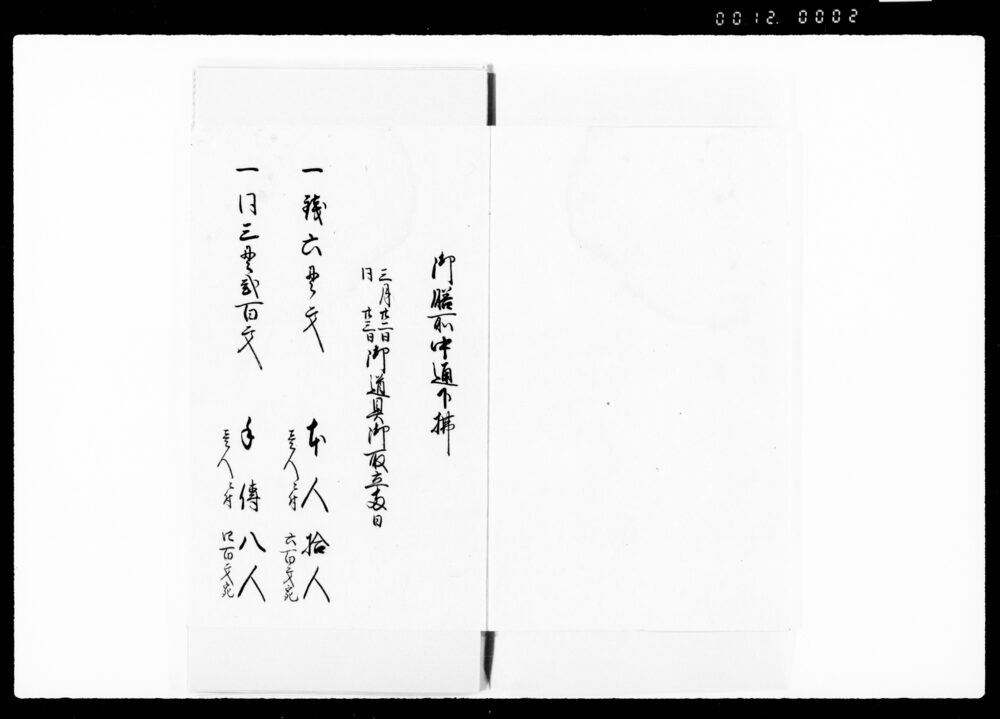 0012. 0002
御膳所中通下拂
三月廿二日
同 廿三日御道具御取立両日
一 錢六貫文 本人拾人
壱人ニ付 六百文宛
一 同三貫弐百文 手傳八人
壱人ニ付 四百文宛